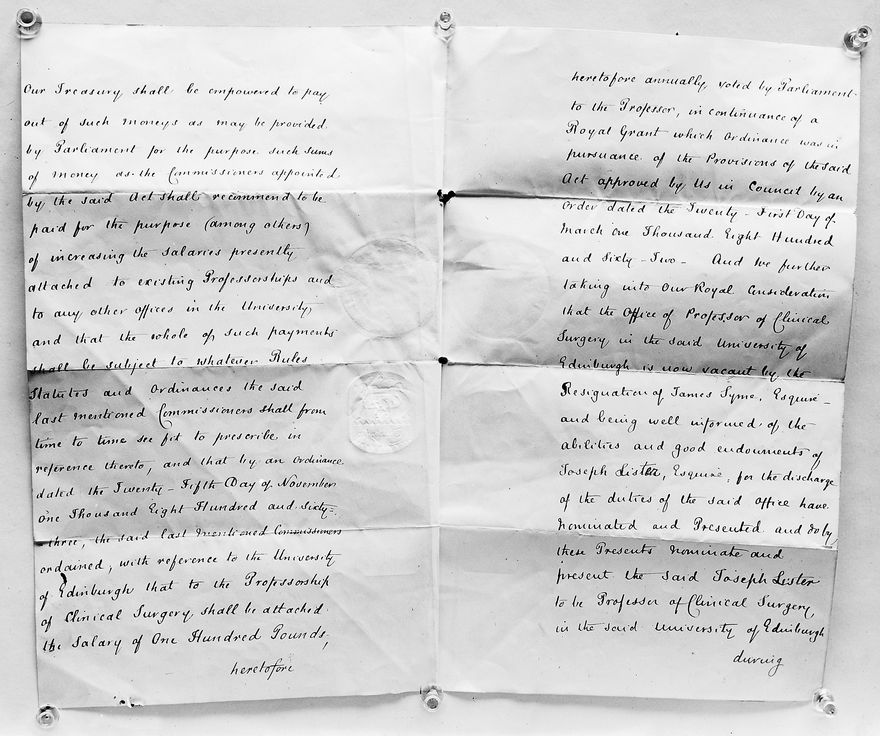 Our Treasury shall be empowered to pay
out of such moneys as may be provided
by Parliament for the purpose such sums
of money as the Commissioners appointed
by the said Act shall recommend to be
paid for the purpose (among others)
of increasing the salaries presently
attached to existing Professorships and
to any other offices in the University,
and that the whole of such payments
shall be subject to whatever Rules
Statutes and Ordinances the said
last mentioned Commissioners shall from
time to time see fit to prescribe in
reference thereto, and that by an Ordinance
dated the Twenty-Fifth Day of November
One Thousand Eight Hundred and Sixty-
-three, the said last mentioned Commissioners
ordained, with reference to the University
of Edinburgh that to the Professorship
of Clinical Surgery, shall be attached
the Salary of One Hundred Pounds,
heretofore
heretofore annually, voted by Parliament
to the Professor, in continuance of a
Royal Grant which Ordinance was in
pursuance of the Provisions of the said
Act approved by Us in Council by an
Order dated the Twenty-First Day of
March One Thousand Eight Hundred
and Sixty-Two- And We further
taking into Our Royal Consideration
that the Office of Professor of Clinical
Surgery in the said University of
Edinburgh is now vacant by the
Resignation of James Syme, Esquire-
and being well informed of the
abilities and good endowments of
Joseph Lister, Esquire, for the discharge
of the duties of the said Office have
Nominated and Presented and do by
these Presents Nominate and
present the said Joseph Lister
to be Professor of Clinical Surgery
in the said University of Edinburgh
during